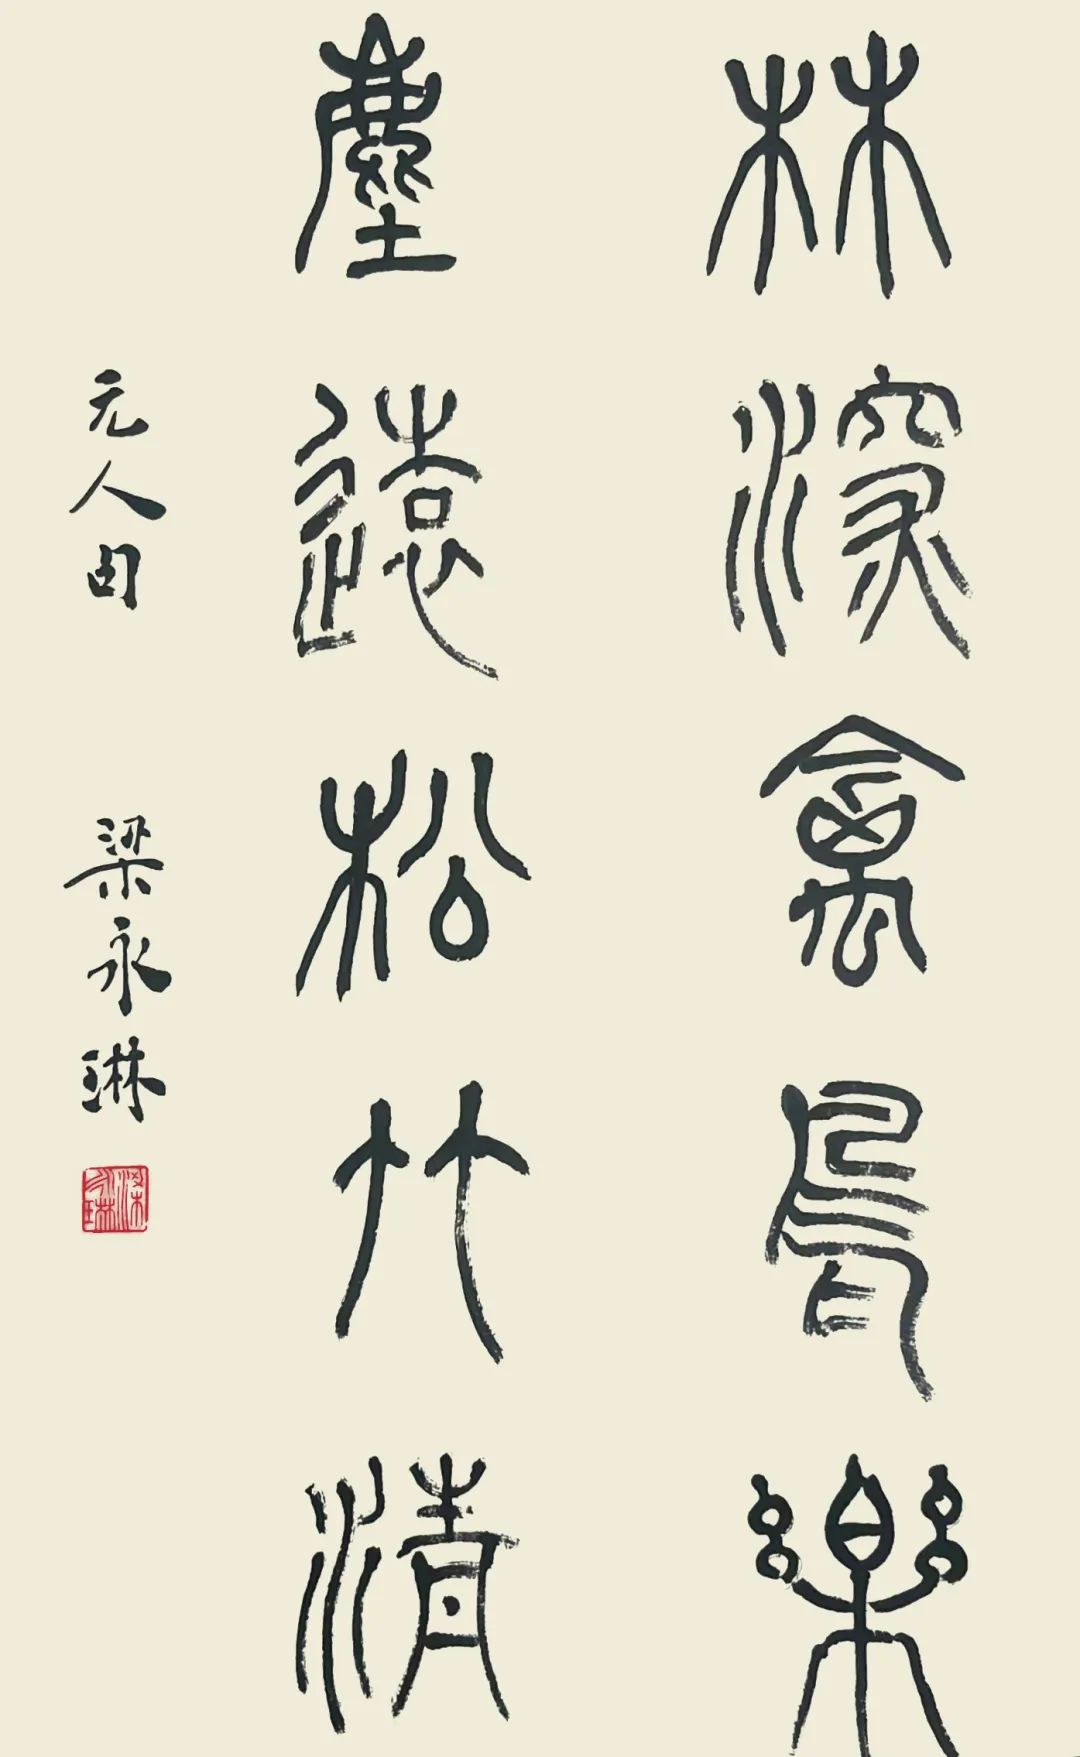 林深禽鳥樂
塵遠松竹清
元人句 梁永琳
梁永琳